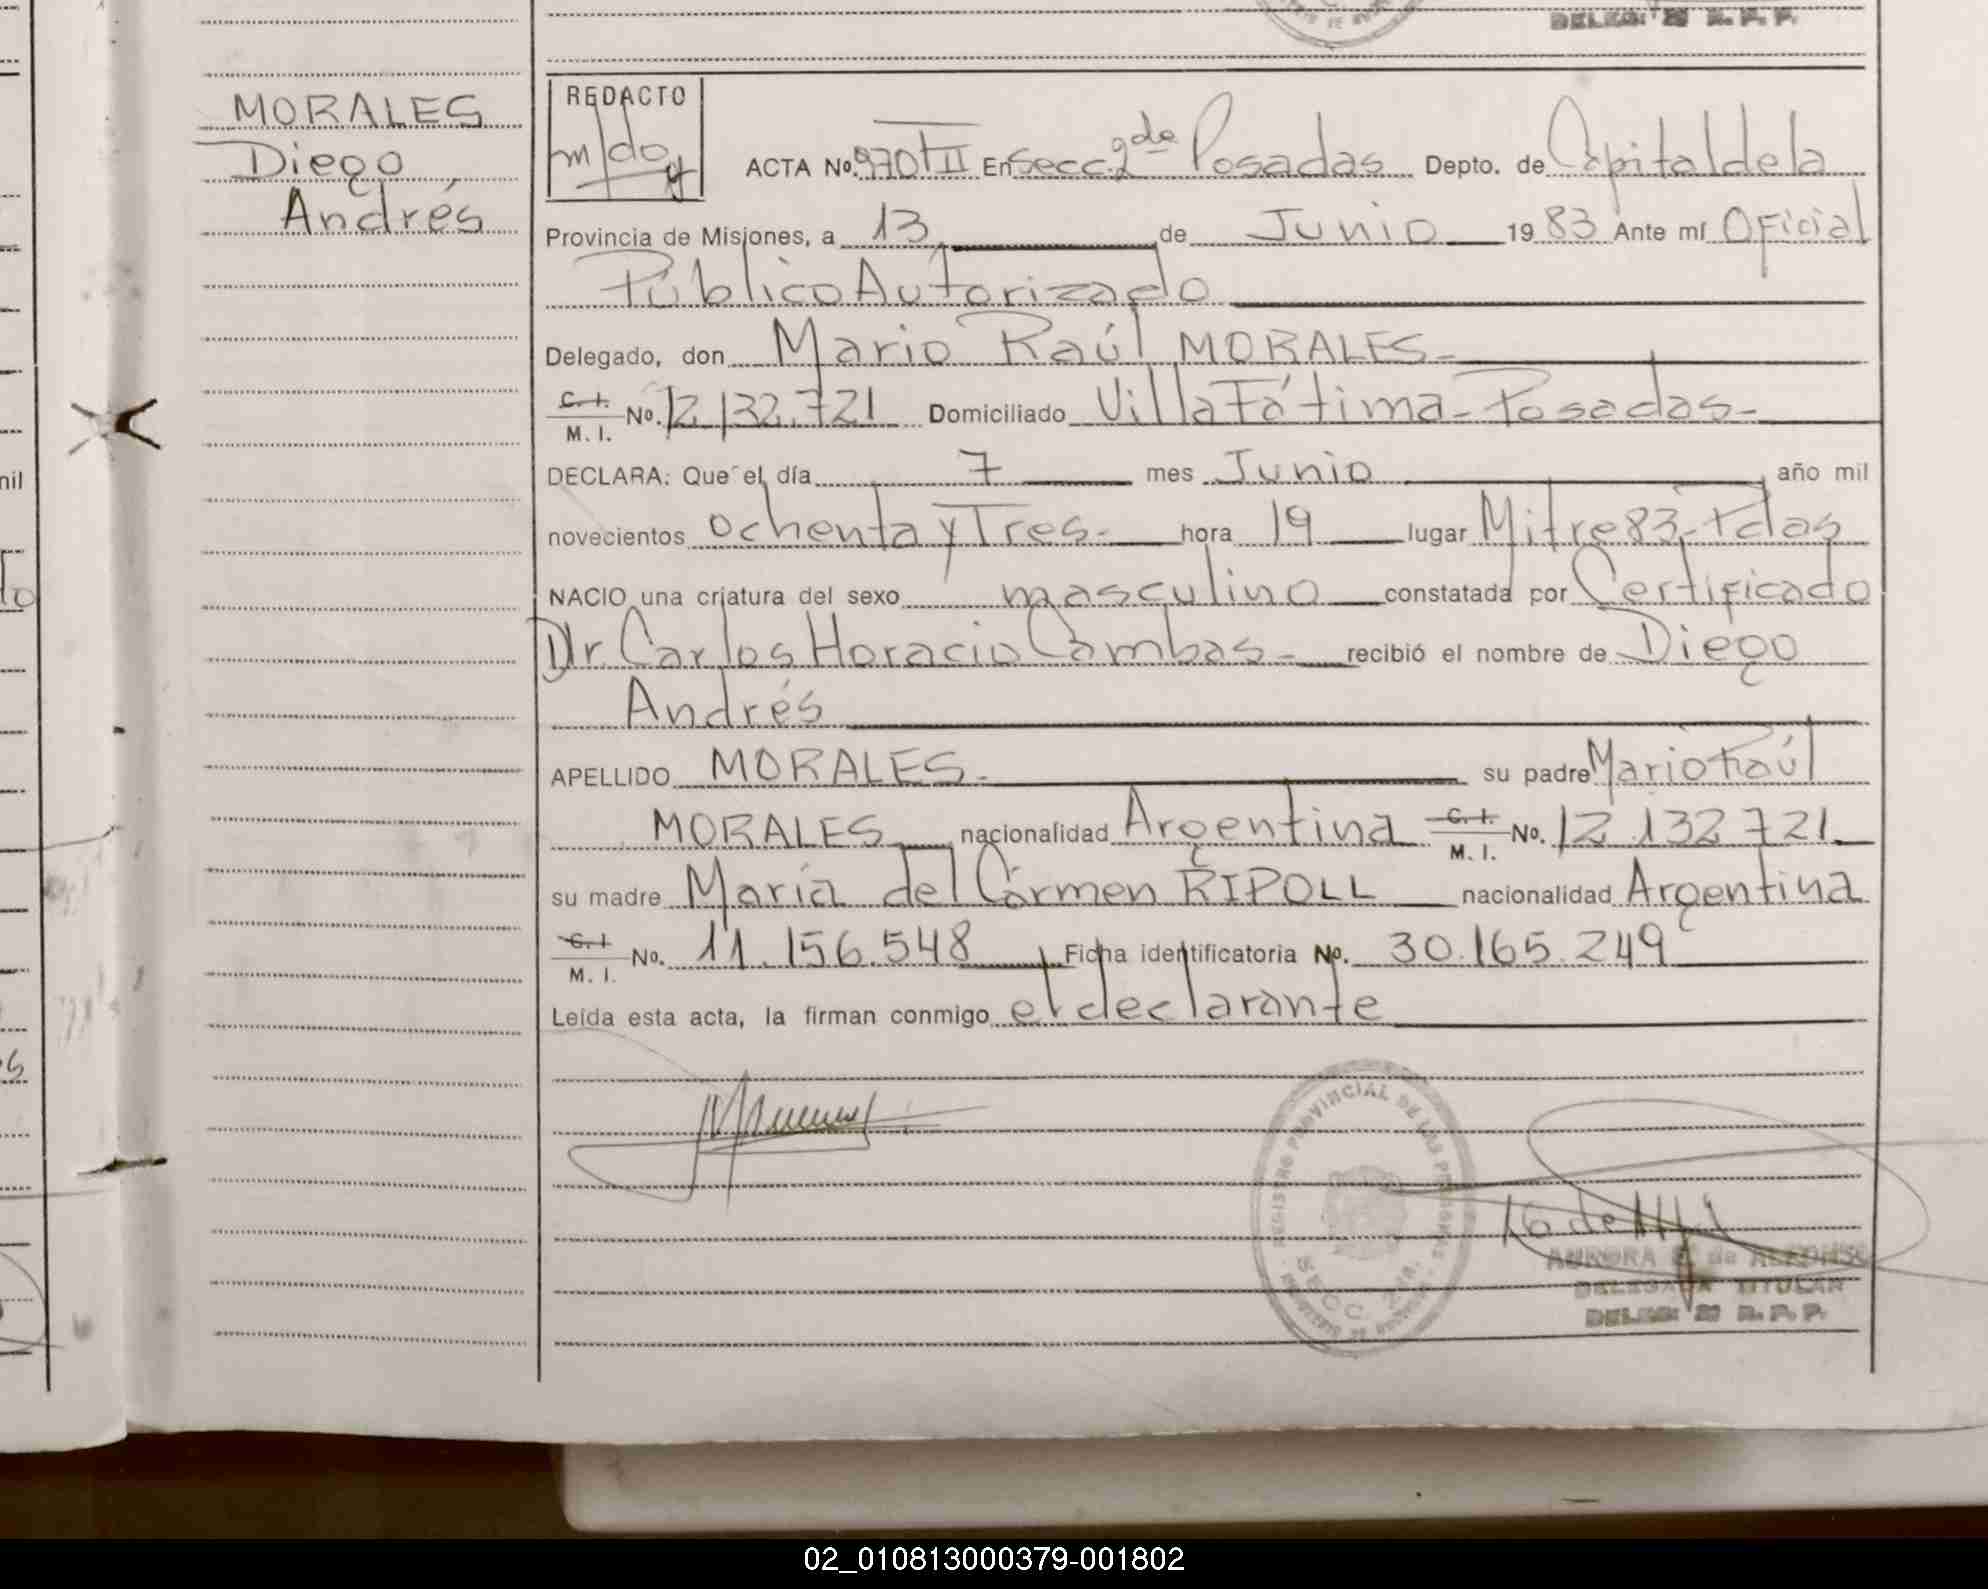 DELEG. 2ª R. P. P.
MORALES
Diego
Andrés
REDACTO
ACTA No. 970 TII En Secc. 2da Posadas Depto. de Capital de la
Provincia de Misiones, a 13 de Junio 1983 Ante mí Oficial
Público Autorizado
Delegado, don Mario Raúl MORALES-
C. I. M. I. No. 12.132.721 Domiciliado Villa Fátima-Posadas-
DECLARA: Que el día 7 mes Junio año mil
novecientos ochenta y Tres- hora 19 lugar Mitre 83-Pdas
NACIO una criatura del sexo masculino constatada por Certificado
Dr. Carlos Horacio Cambas- recibió el nombre de Diego
Andrés
APELLIDO MORALES- su padre Mario Raúl
MORALES nacionalidad Argentina C. I. M. I. No. 12.132.721
su madre María del Cármen RIPOLL nacionalidad Argentina
C. I. M. I. No. 11.156.548 Ficha identificatoria No. 30.165.249
Leída esta acta, la firman conmigo el declarante
REGISTRO PROVINCIAL DE LAS PERSONAS
SECC. 2da.
AURORA de
DELEGADA TITULAR
DELEG. 2ª R. P. P.
02_010813000379-001802